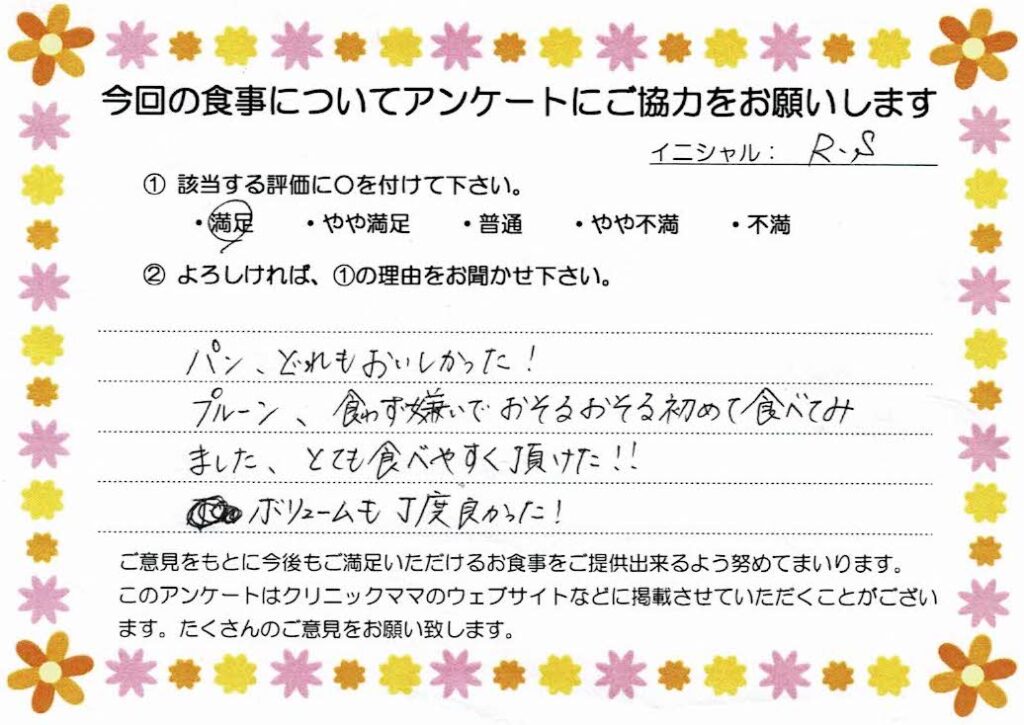 今回の食事についてアンケートにご協力をお願いします
イニシャル： R.S
① 該当する評価に〇を付けて下さい。
・満足 ・やや満足 ・普通 ・やや不満 ・不満
② よろしければ、①の理由をお聞かせ下さい。
パン、どれもおいしかった！
プルーン、食わず嫌いでおそるおそる初めて食べてみ
ました、とても食べやすく頂けた!!
ボリュームも丁度良かった！
ご意見をもとに今後もご満足いただけるお食事をご提供出来るよう努めてまいります。
このアンケートはクリニックママのウェブサイトなどに掲載させていただくことがござい
ます。たくさんのご意見をお願い致します。